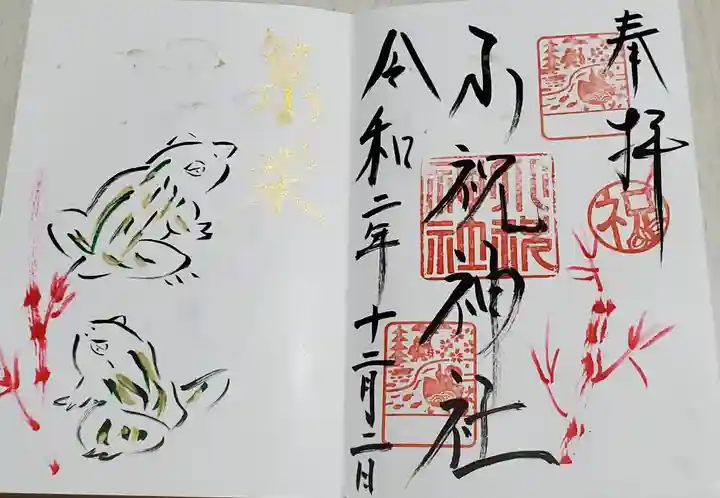 奉拝
祝
小祝神社
小祝
神社
令和二年十二月二日